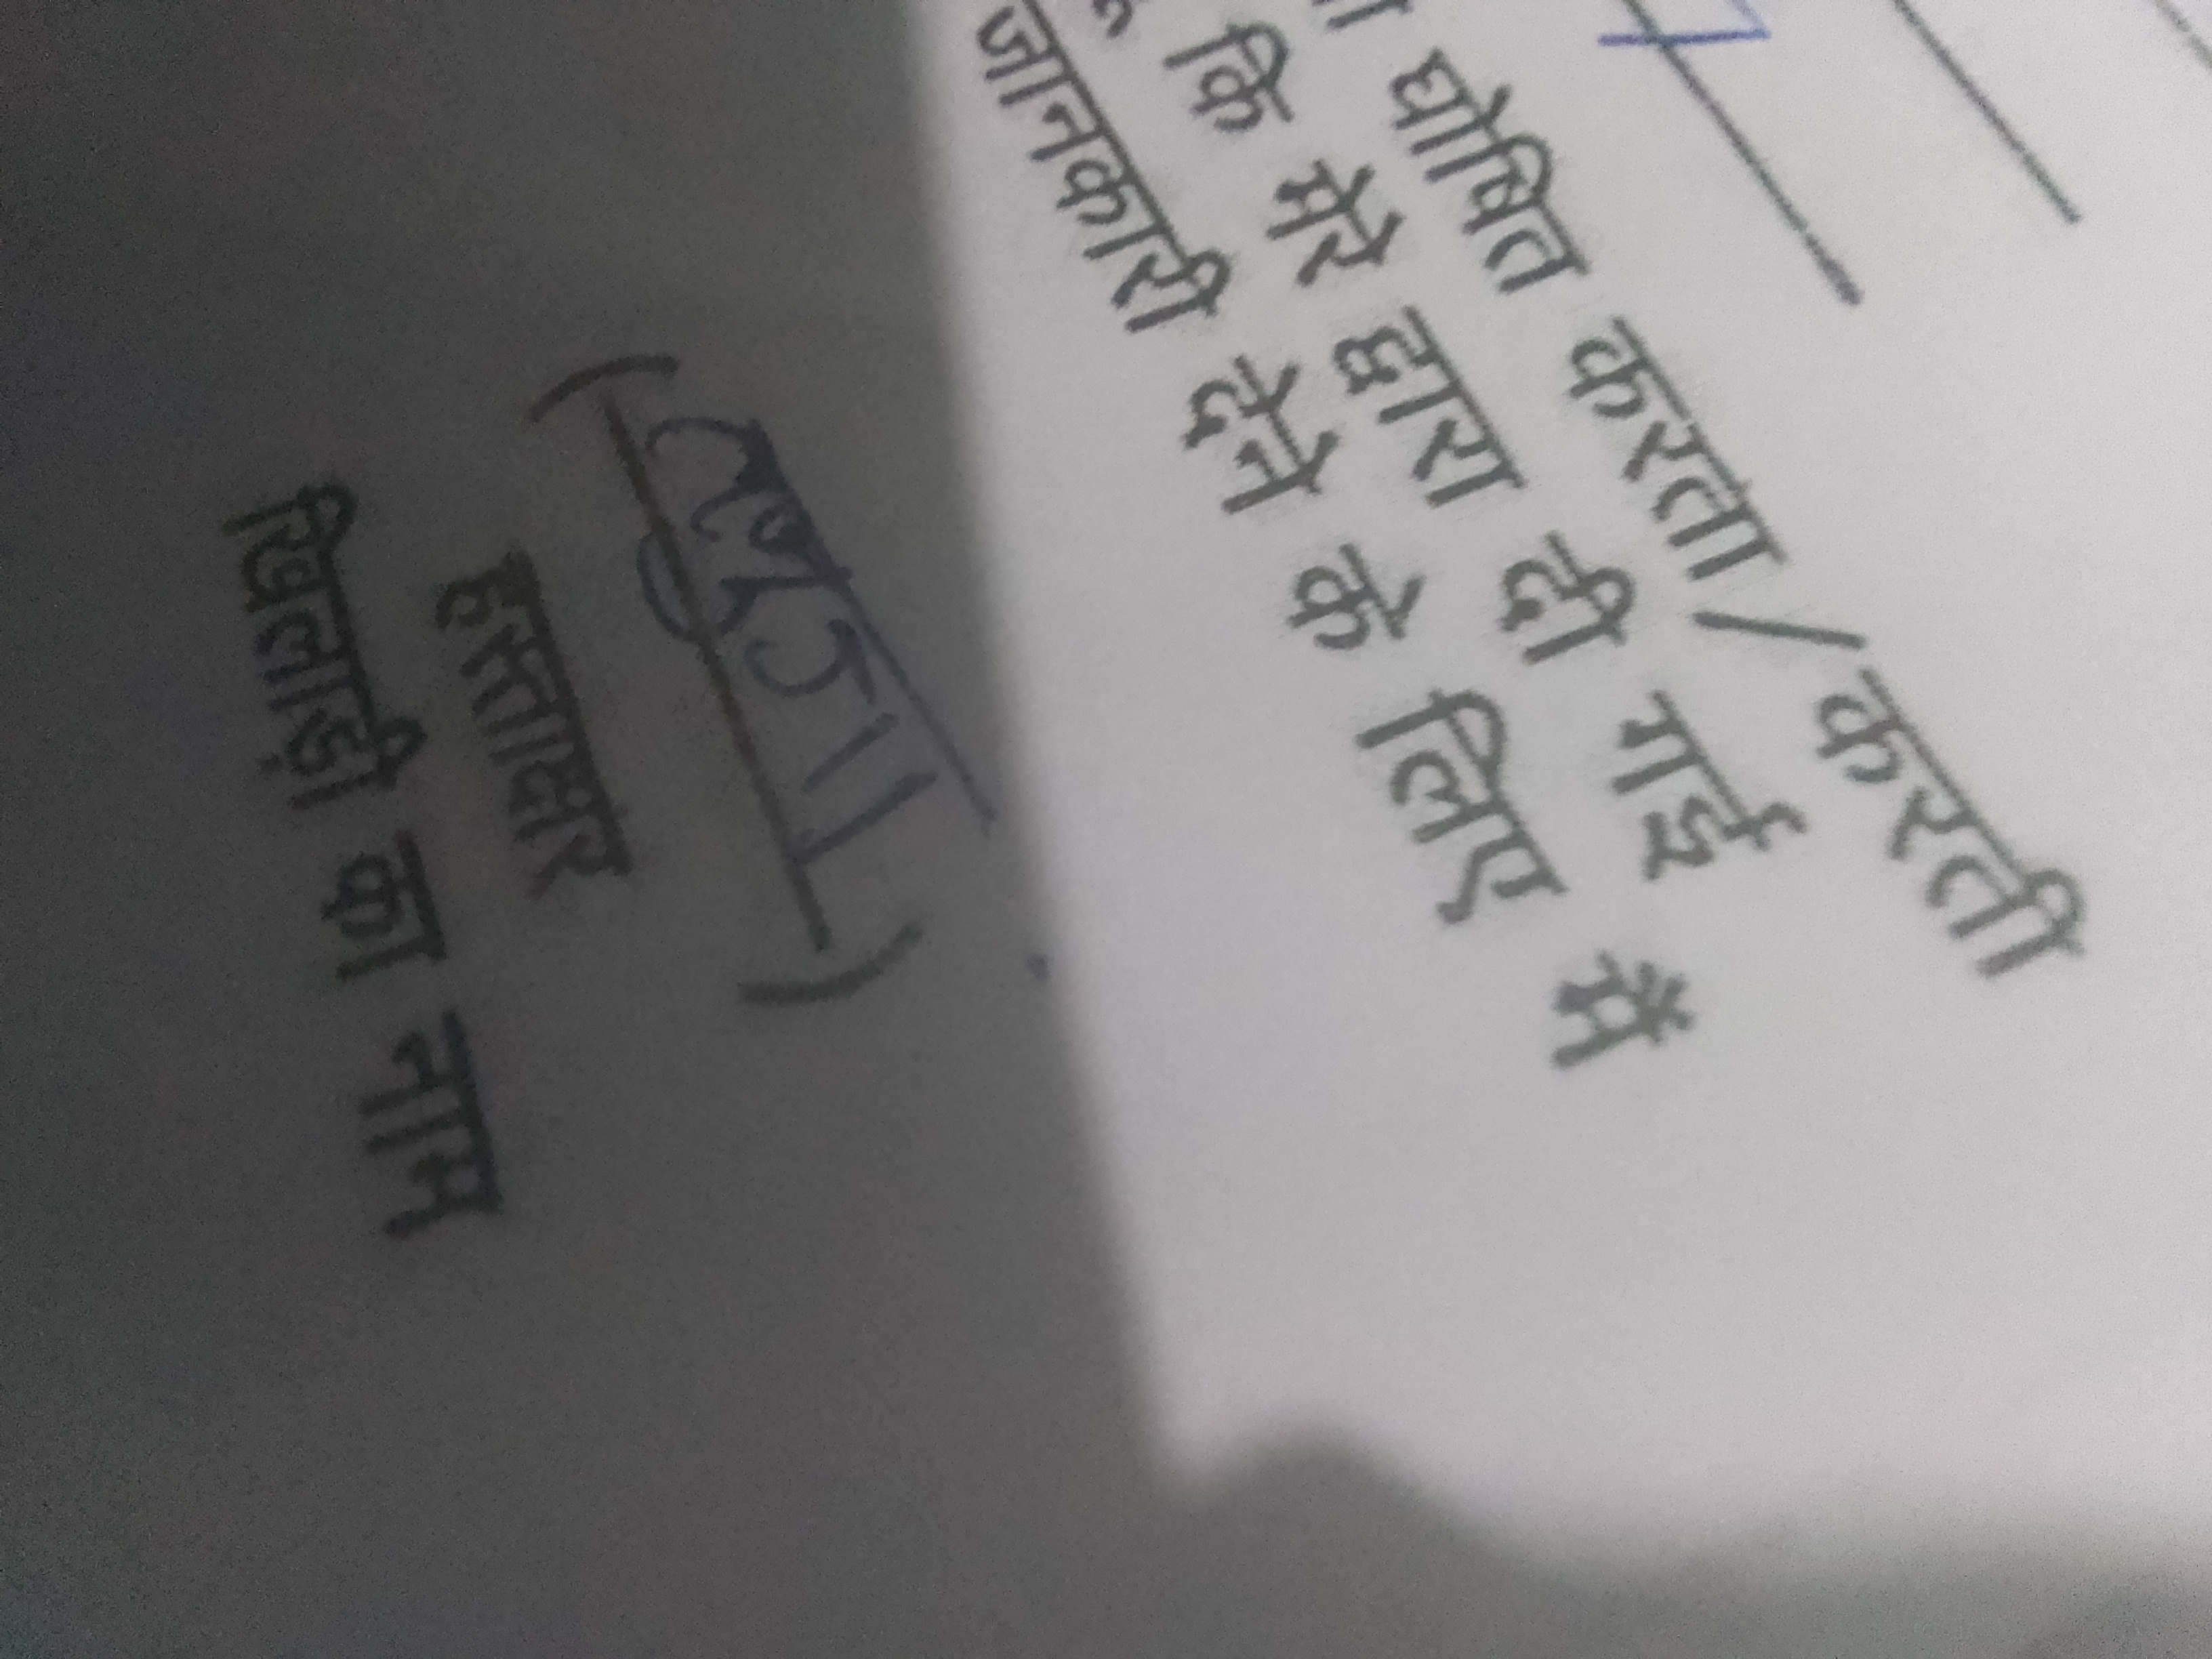 घोषित करता / करती
कि मेरे द्वारा दी गई
जानकारी देने के लिए मैं
( )
हस्ताक्षर
खिलाड़ी का नाम